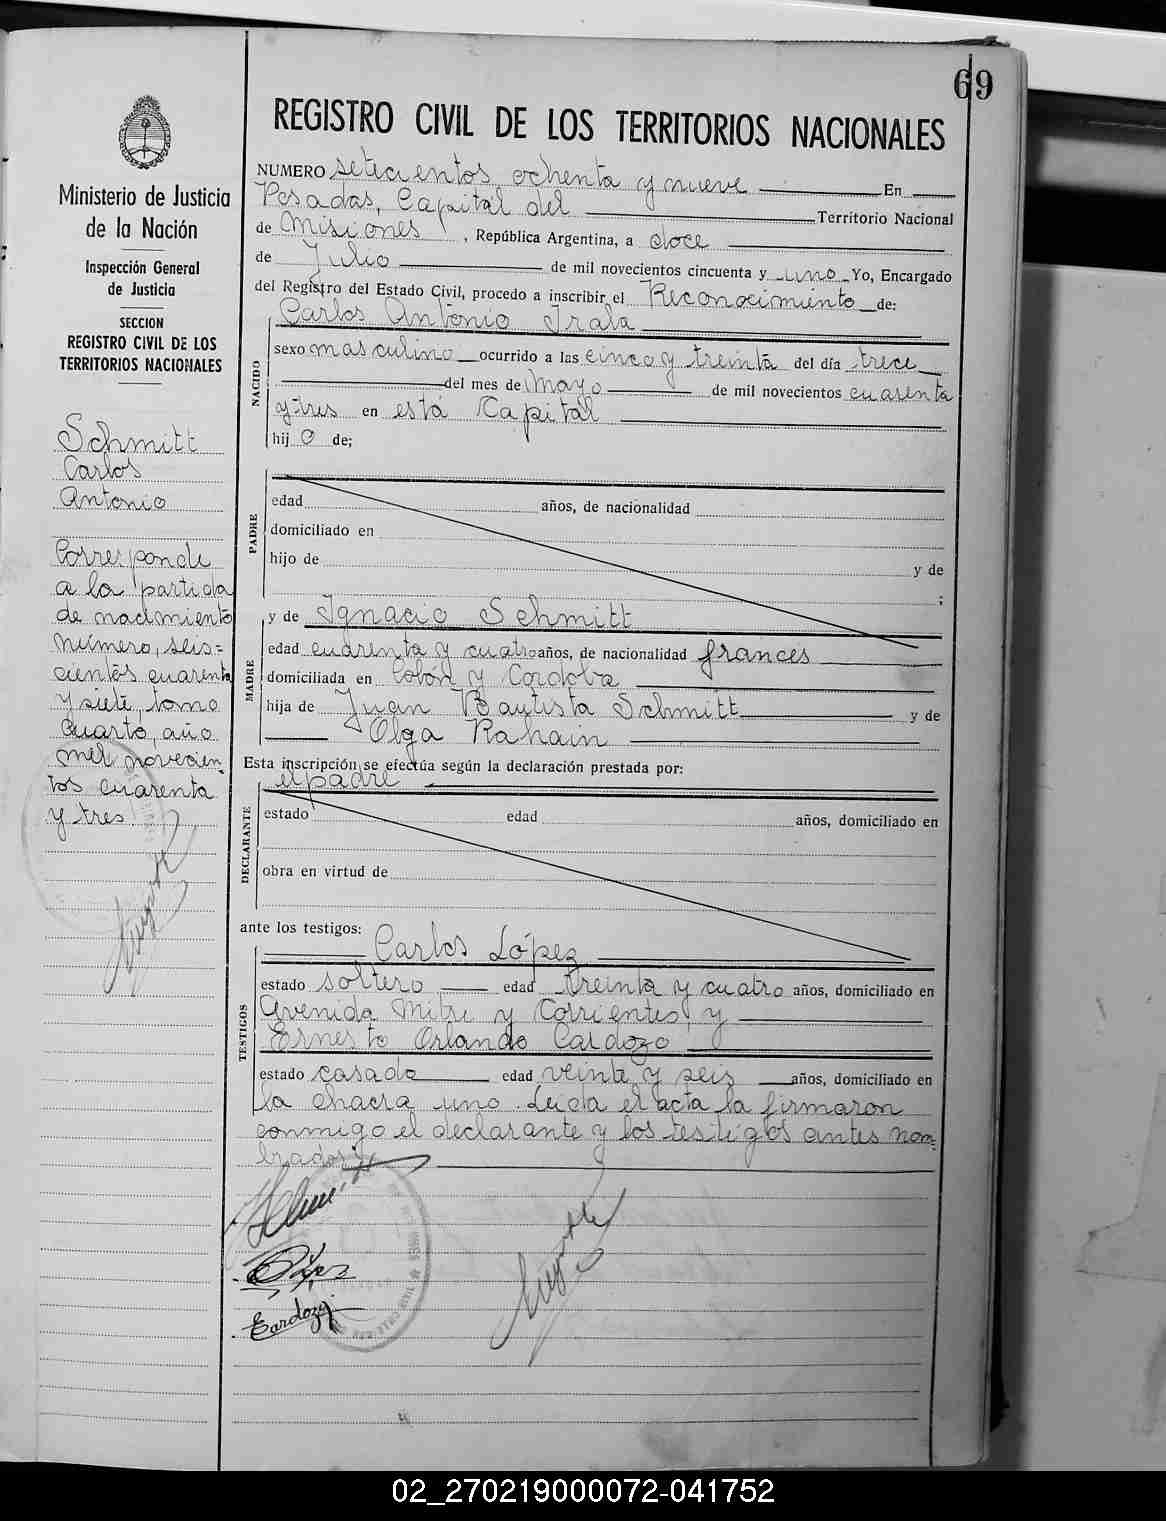 69
Ministerio de Justicia
de la Nación
Inspección General
de Justicia
SECCION
REGISTRO CIVIL DE LOS
TERRITORIOS NACIONALES
Schmitt
Carlos
Antonio
Corresponde
a la partida
de nacimiento
número, seis=
cientos cuarenta
y siete, tomo
cuarto, año
mil novecien
tos cuarenta
y tres
REGISTRO CIVIL DE LOS TERRITORIOS NACIONALES
NUMERO setecientos ochenta y nueve En
Posadas, Capital del Territorio Nacional
de Misiones, República Argentina, a doce
de Julio de mil novecientos cincuenta y uno Yo, Encargado
del Registro del Estado Civil, procedo a inscribir el Reconocimiento de:
Carlos Antonio Irala
NACIDO
sexo masculino ocurrido a las cinco y treinta del día trece
del mes de Mayo de mil novecientos cuarenta
y tres en está Capital
hijo de;
PADRE
edad años, de nacionalidad
domiciliado en
hijo de y de
;
y de Ignacio Schmitt
MADRE
edad cuarenta y cuatro años, de nacionalidad frances
domiciliada en Colón y Cordoba
hija de Juan Bautista Schmitt y de
Olga Rahain
Esta inscripción se efectúa según la declaración prestada por:
el padre
DECLARANTE
estado edad años, domiciliado en
obra en virtud de
ante los testigos:
Carlos López
TESTIGOS
estado soltero edad treinta y cuatro años, domiciliado en
Avenida Mitre y Corrientes, y
Ernesto Orlando Cardozo
estado casado edad veinte y seis años, domiciliado en
la chacra uno. Leida el acta la firmaron
conmigo el declarante y los testigos antes nom=
brados.
Cardozo
02_270219000072-041752